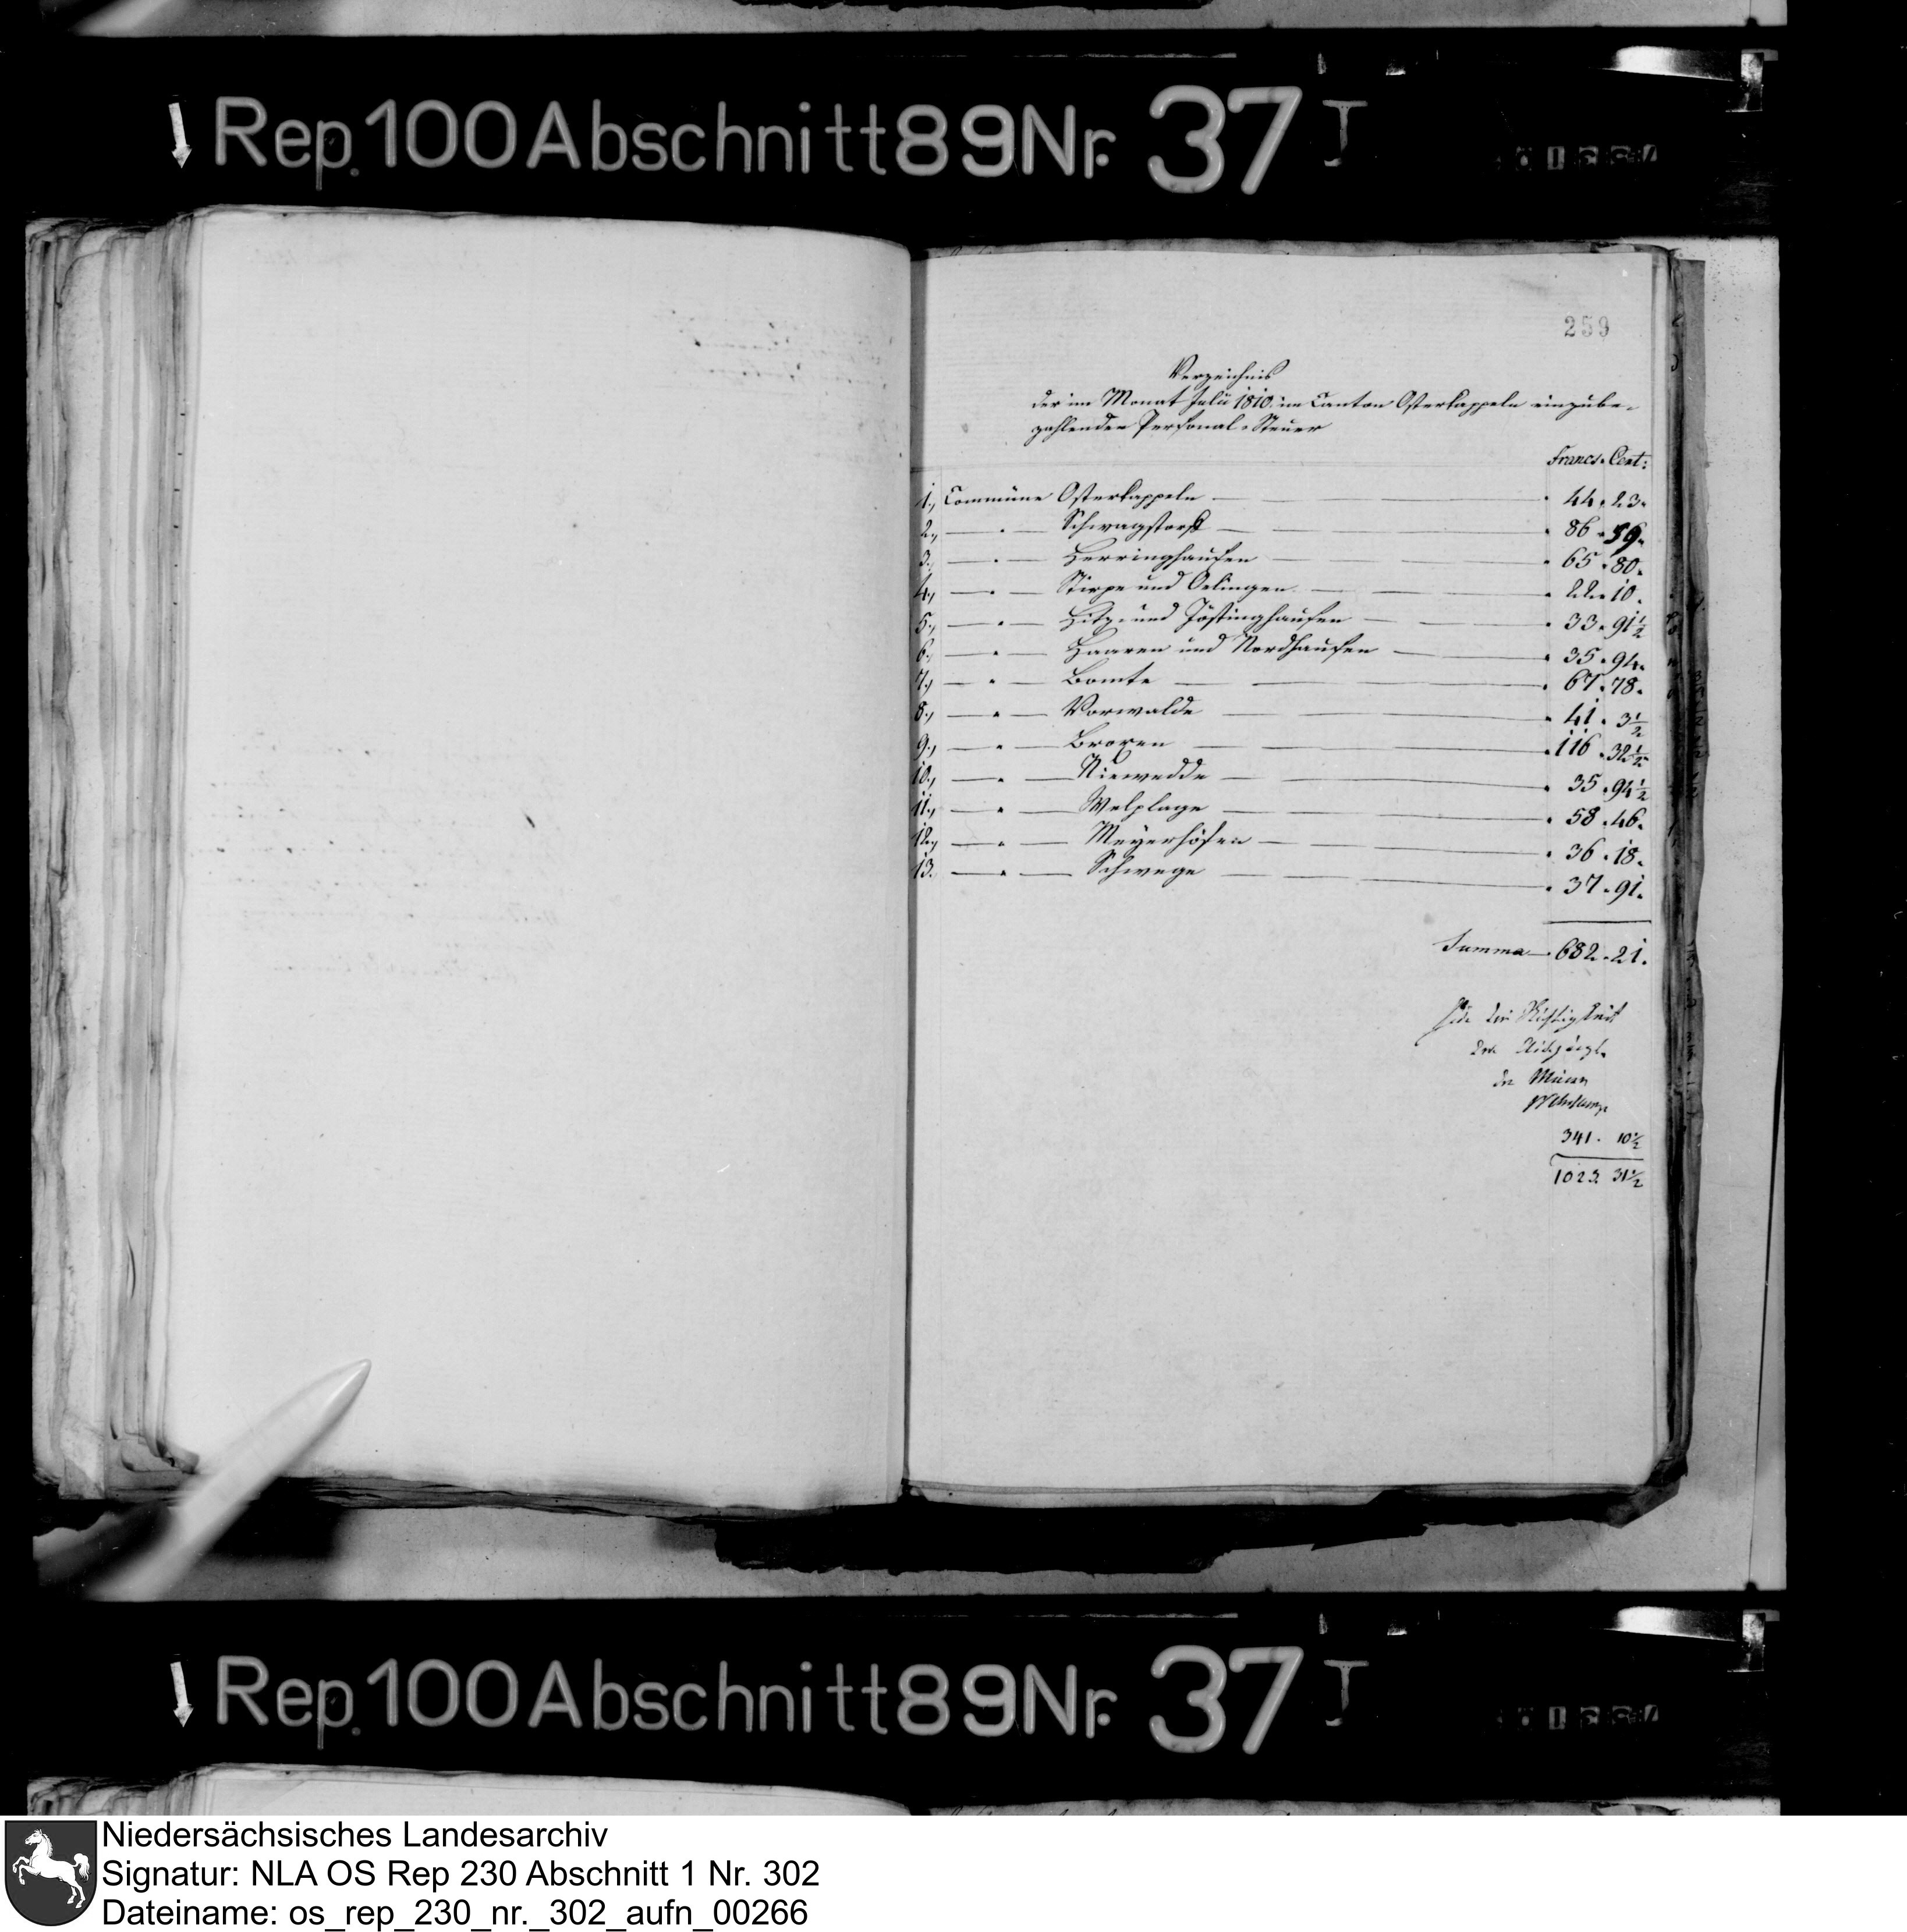 Rep. 100 Abschnitt 89 Nr. 37 I
259
Verzeichnis
der im Monat Julii 1810. im Canton Osterkappeln einzube-
zahlenden Personal-Steuer
Francs. Cent:
1., Commüne Osterkappeln — 44. 23.
2., — " — Schwagstorf — 86. 59.
3., — " — Herringhausen — 65. 80.
4., — " — Stirpe und Oelingen — 22. 10.
5., — " — Hitz- und Jöstinghausen — 33. 91½
6., — " — Haaren und Nordhausen — 35. 94.
7., — " — Bomte — 67. 78.
8., — " — Vorwalde — 41. 3½
9., — " — Broxen — 116. 32½
10., — " — Niewedde — 35. 94½
11., — " — Welplage — 58. 46.
12., — " — Meyerhöfen — 36. 18.
13. — " — Schwege — 37. 91.
Summa — 682. 21.
Für die Richtigkeit
des Auszugs
der Maire
341. 10½
1023. 31½
Rep. 100 Abschnitt 89 Nr. 37 I
Niedersächsisches Landesarchiv
Signatur: NLA OS Rep 230 Abschnitt 1 Nr. 302
Dateiname: os_rep_230_nr._302_aufn_00266